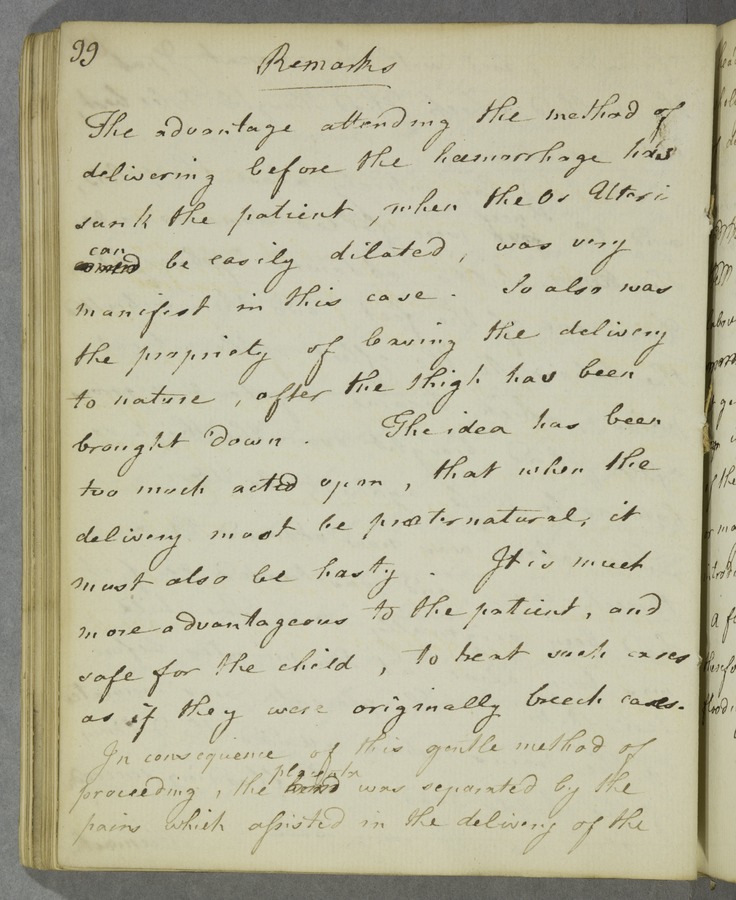 99
Remarks
The advantage attending the method of
delivering before the hæmorrhage has
sunk the patient, when the Os Uteri
can
be easily dilated, was very
manifest in this case. So also was
the propriety of leaving the delivery
to nature, after the thigh has been
brought down. The idea has been
too much acted upon, that when the
delivery must be præternatural, it
must also be hasty. It is much
more advantageous to the patient, and
safe for the child, to treat such cases
as if they were originally breech cases.
In consequence of this gentle method of
placenta
proceeding, the was separated by the
pains which assisted in the delivery of the